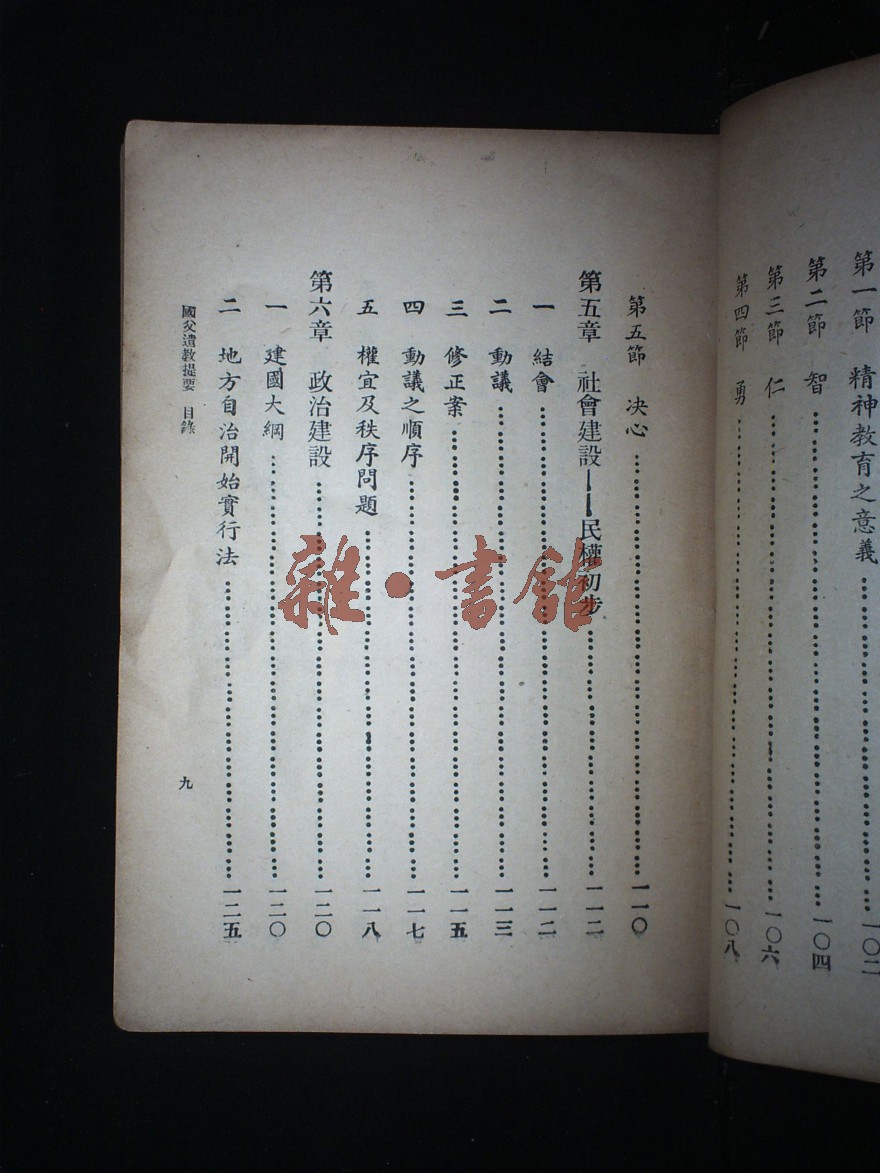 第一節　精神教育之意義………一〇二
第二節　智………一〇四
第三節　仁………一〇六
第四節　勇………一〇八
第五節　決心………一一〇
第五章　社會建設——民權初步………一一二
一　結會………一一二
二　動議………一一三
三　修正案………一一五
四　動議之順序………一一七
五　權宜及秩序問題………一一八
第六章　政治建設………一二〇
一　建國大綱………一二〇
二　地方自治開始實行法………一二五
國父遺教提要　目錄
九
雜·書館